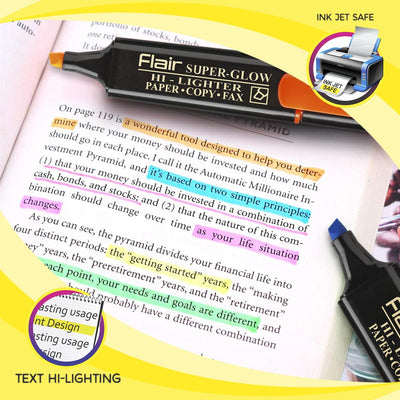 INK JET SAFE
portion of
own bo
Flair SUPER-GLOW
HI-LIGHTER
PAPER·COPY·FAX
INK JET
SAFE
PYRAMID
On page 119 is a wonderful tool designed to help you deter-
mine where your money should be invested and how much
should go in each place. I call it the Automatic Millionaire In-
vestment Pyramid, and it's based on two simple principles:
(1) that your money should be invested in a combination of
cash, bonds, and stocks; and (2) that the nature of this com-
bination should change over time as your life situation
changes.
As you can see, the pyramid divides your financial life into
four distinct periods: the "getting started" years, the "making
years, the "preretirement" years, and the "retirement"
each point, your needs and goals are different, and
should probably have a different combination
Flair
HI-
PAPER·CO
asting usage
nt Design
asting usage
esign
TEXT HI-LIGHTING